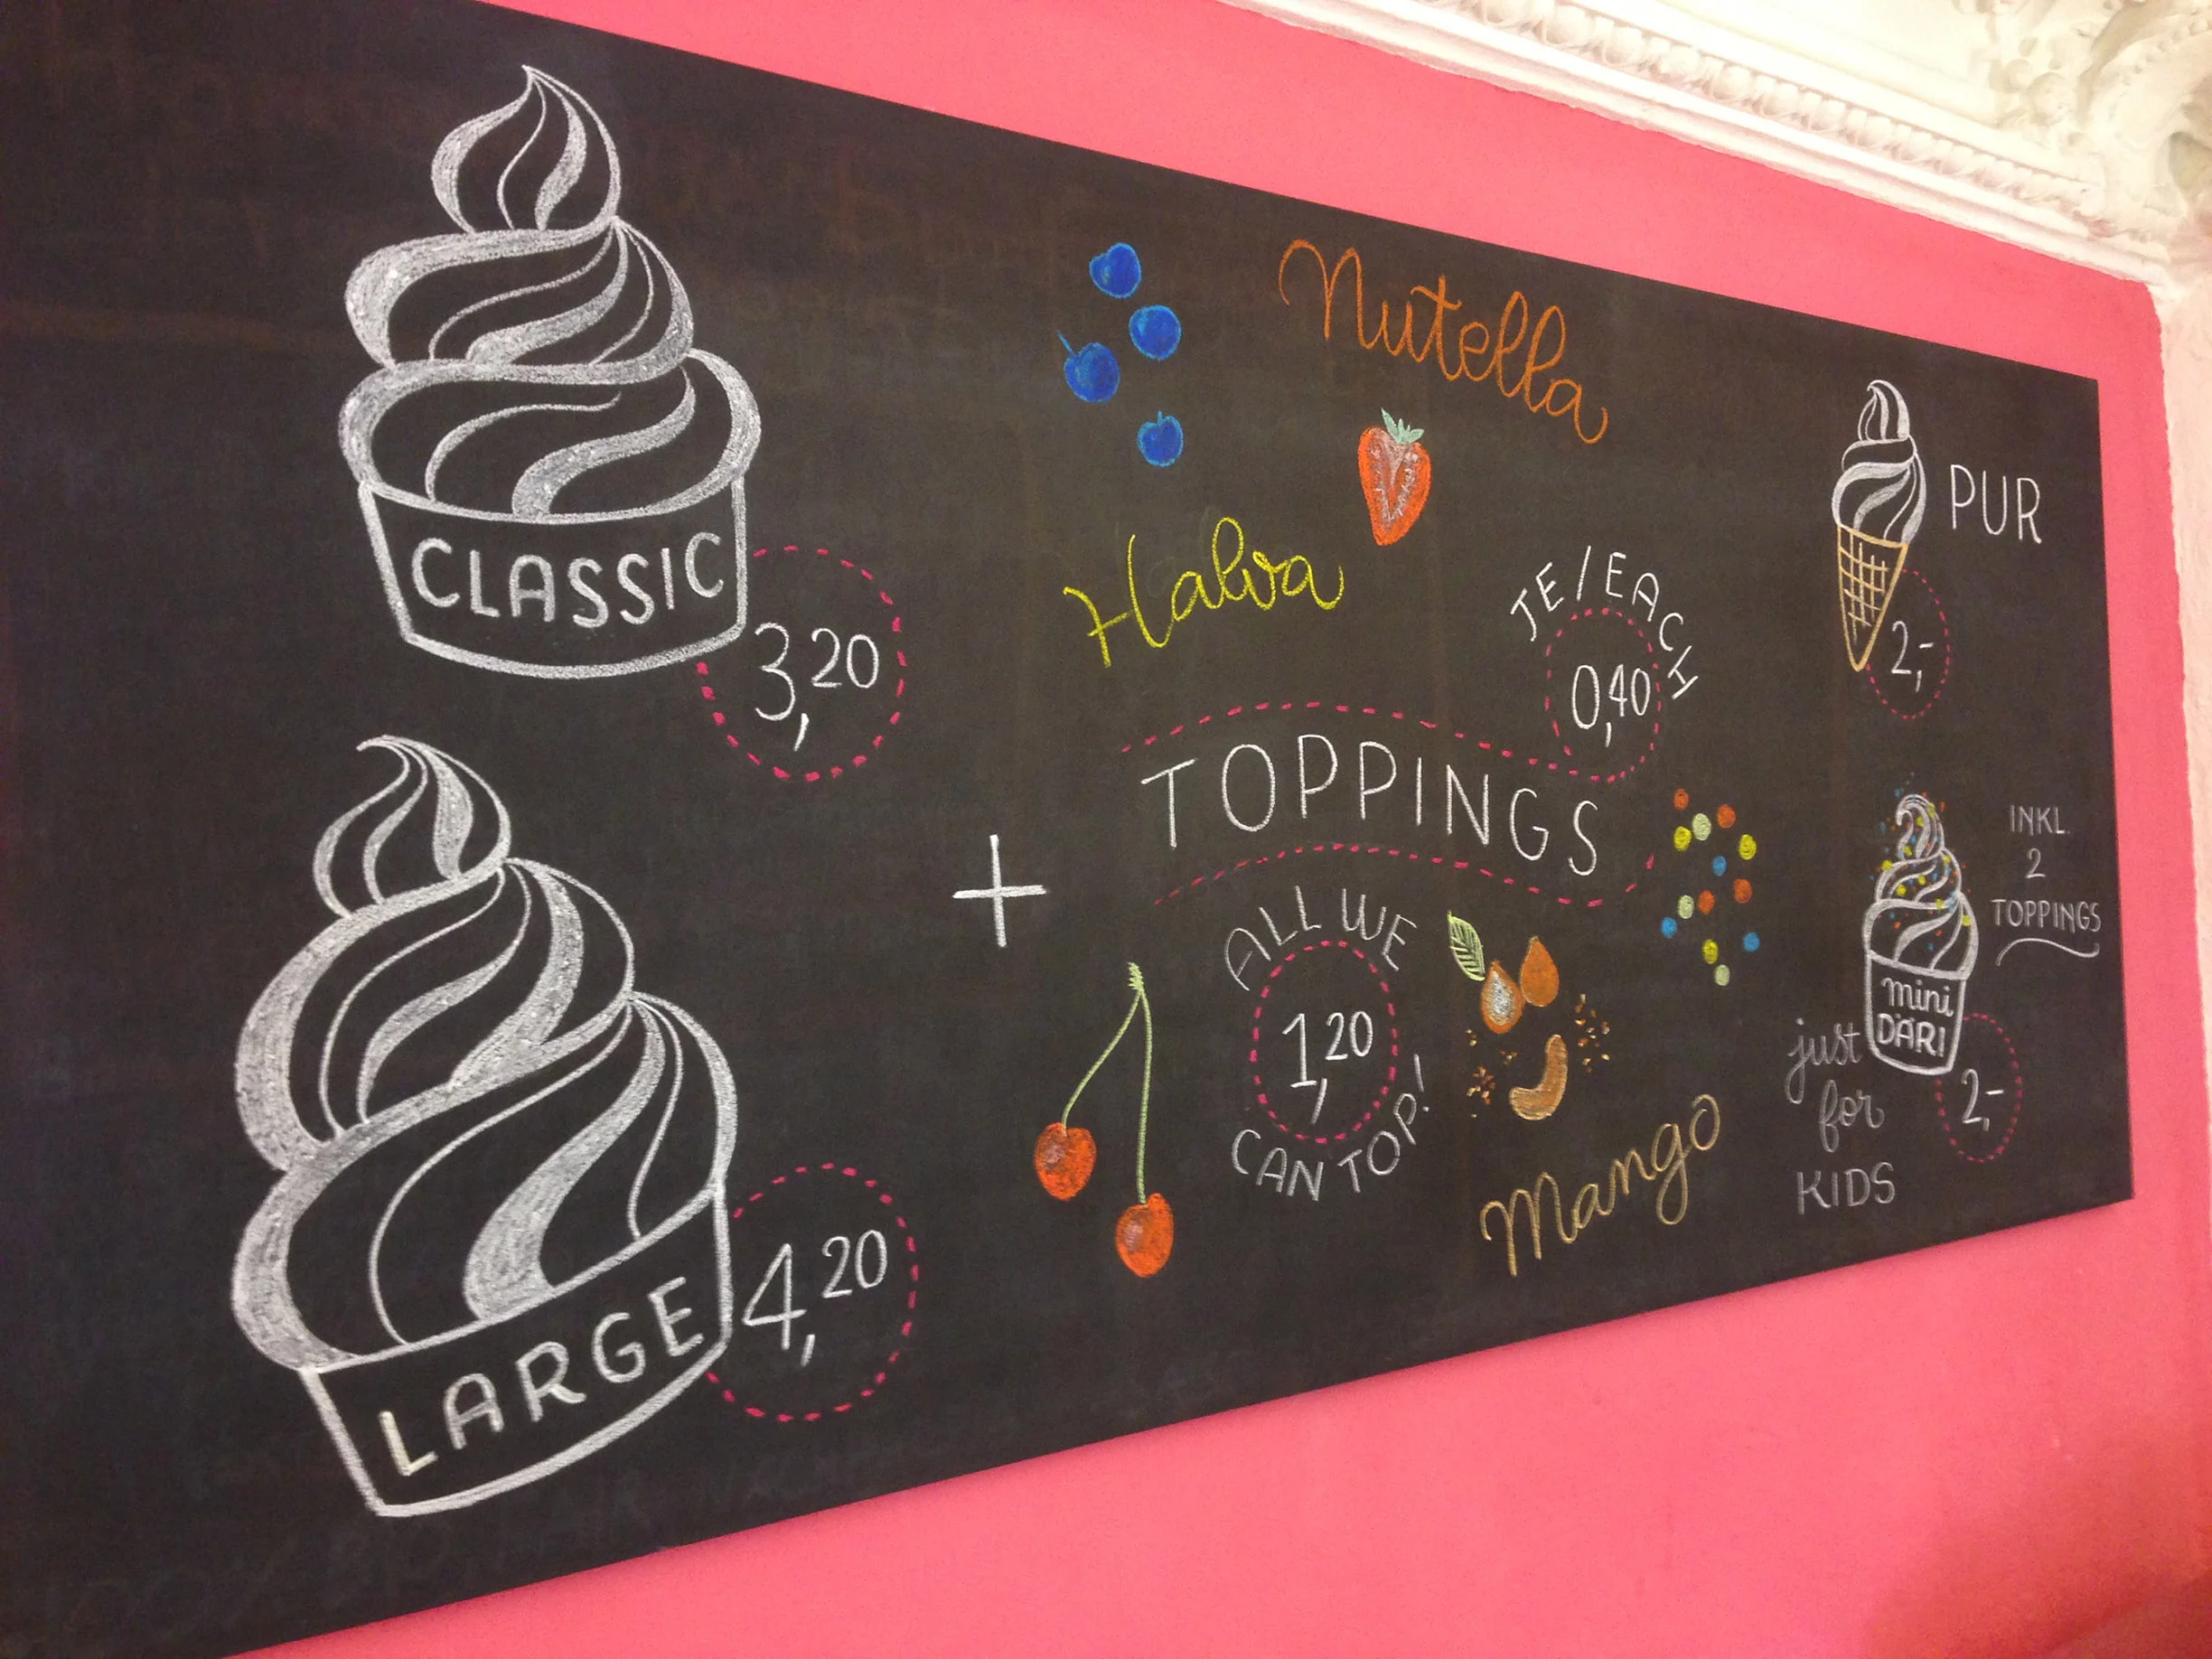 CLASSIC
3,20
LARGE
4,20
+
Nutella
Halva
JE/EACH
0,40
TOPPINGS
ALL WE
1,20
CAN TOP!
Mango
PUR
2,-
INKL.
2
TOPPINGS
mini
DÄRI
2,-
just
for
KIDS